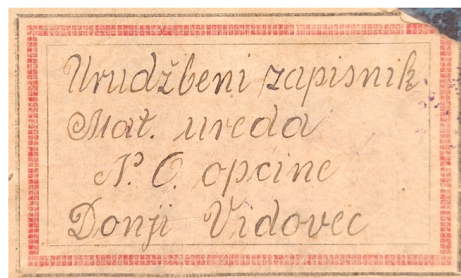 Urudžbeni zapisnik
Mat. ureda
N. O. opcine
Donji Vidovec